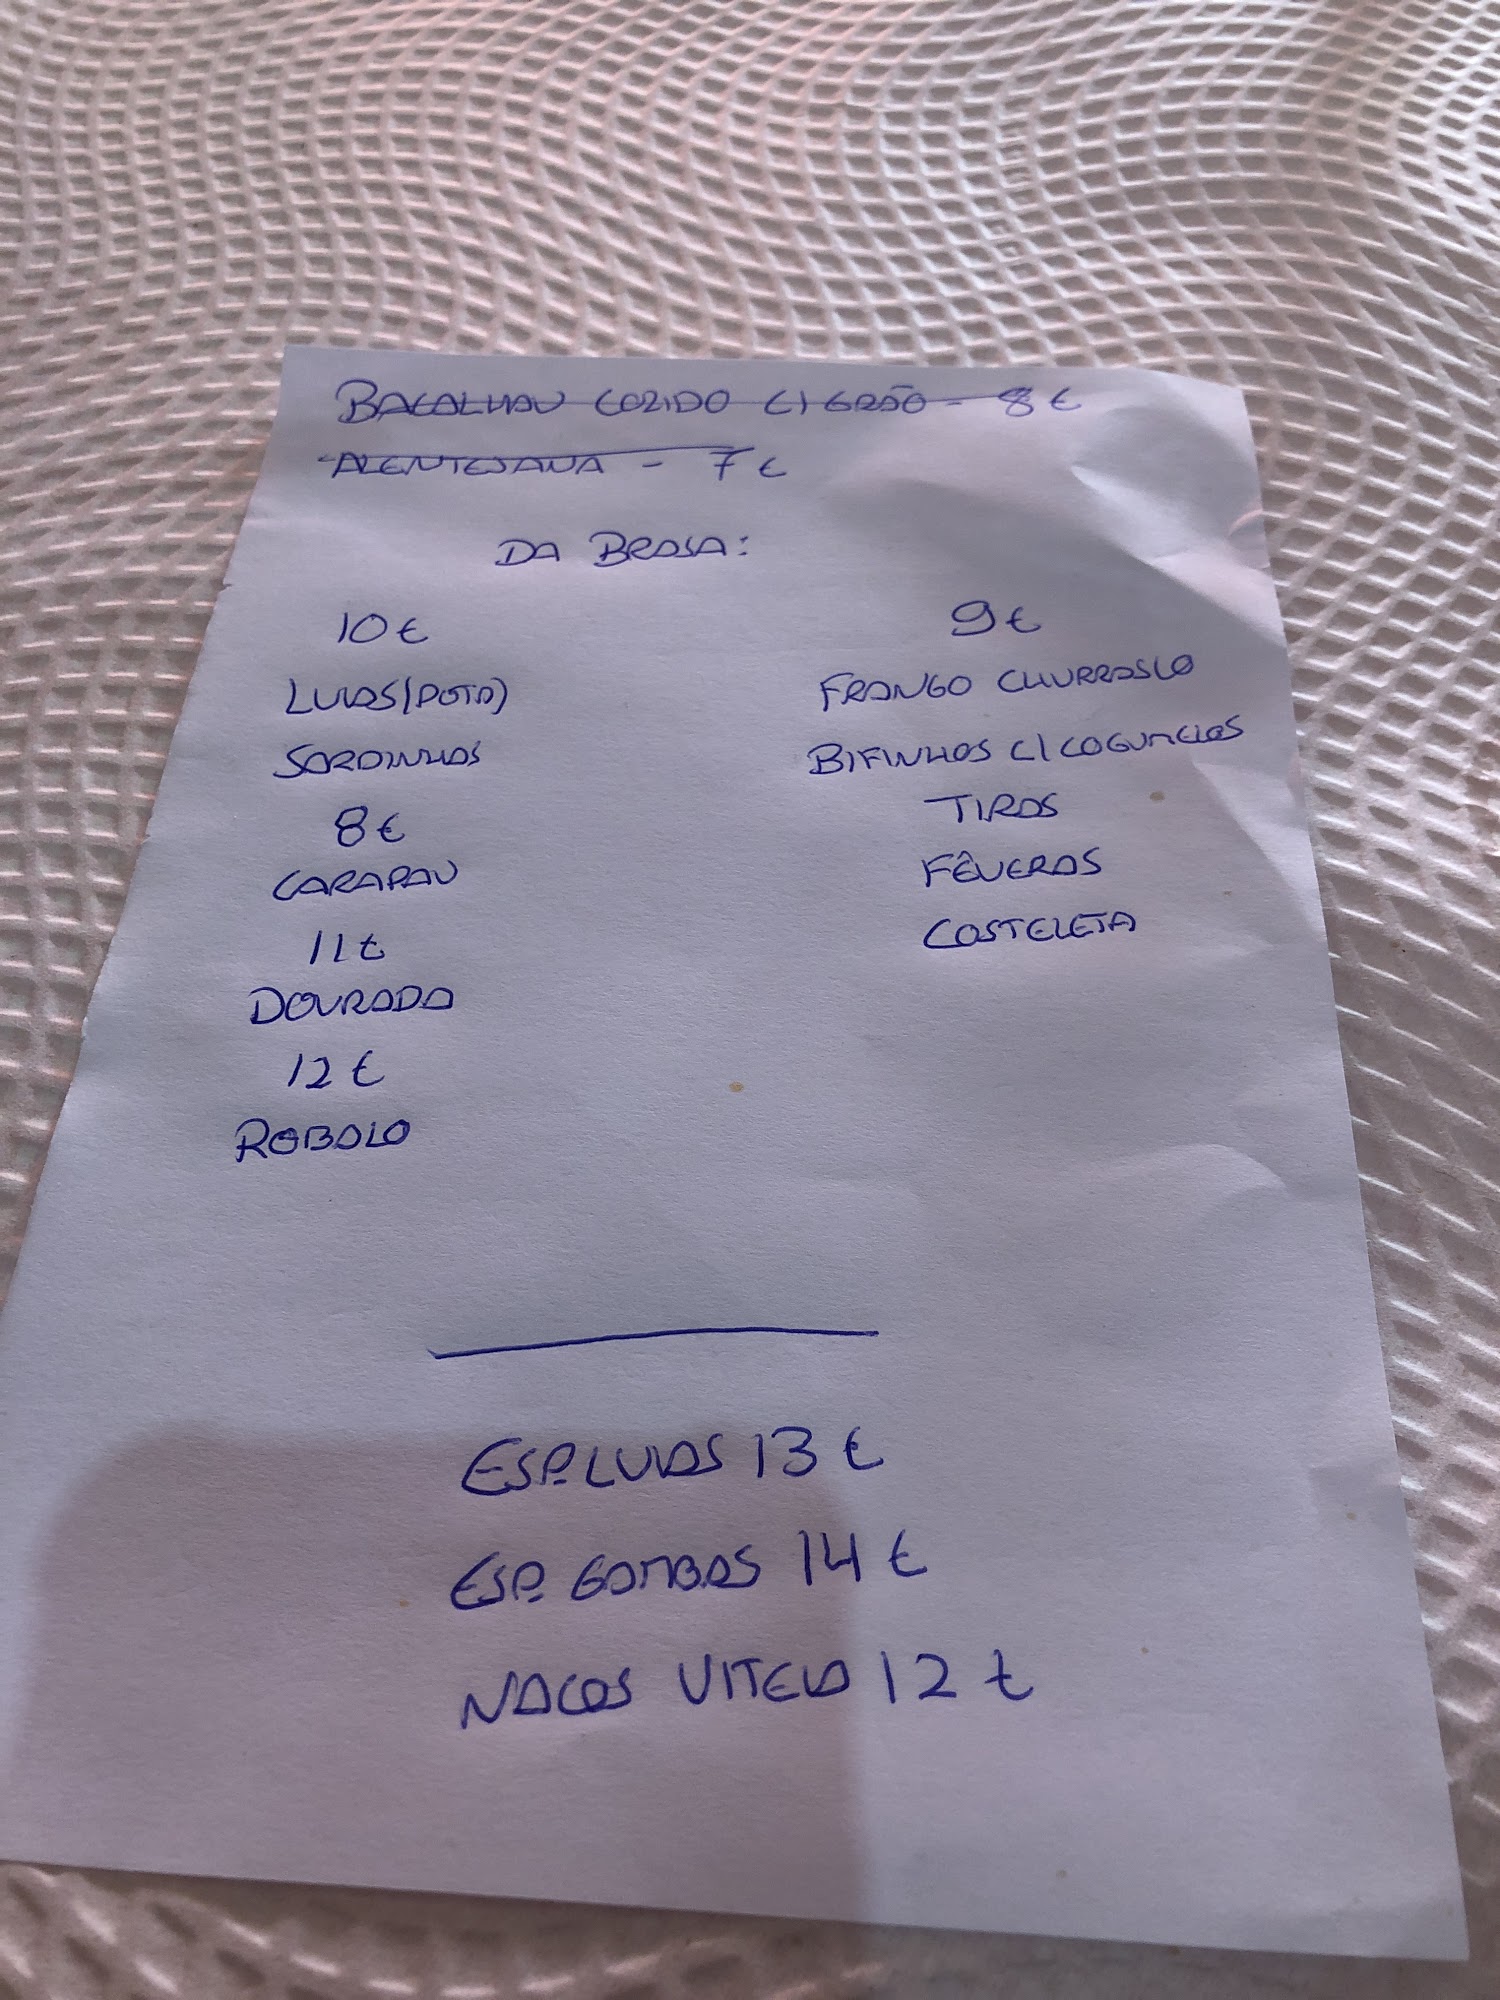 BACALHAU COZIDO C/ GRÃO - 8€
ALENTEJANA - 7€
DA BRASA:
10€
LULAS (POTA)
SARDINHAS
8€
CARAPAU
11€
DOURADA
12€
ROBALO
9€
FRANGO CHURRASCO
BIFINHOS C/ COGUMELOS
TIRAS
FÊVERAS
COSTELETA
ESP. LULAS 13€
ESP. GAMBAS 14€
NACOS VITELA 12€